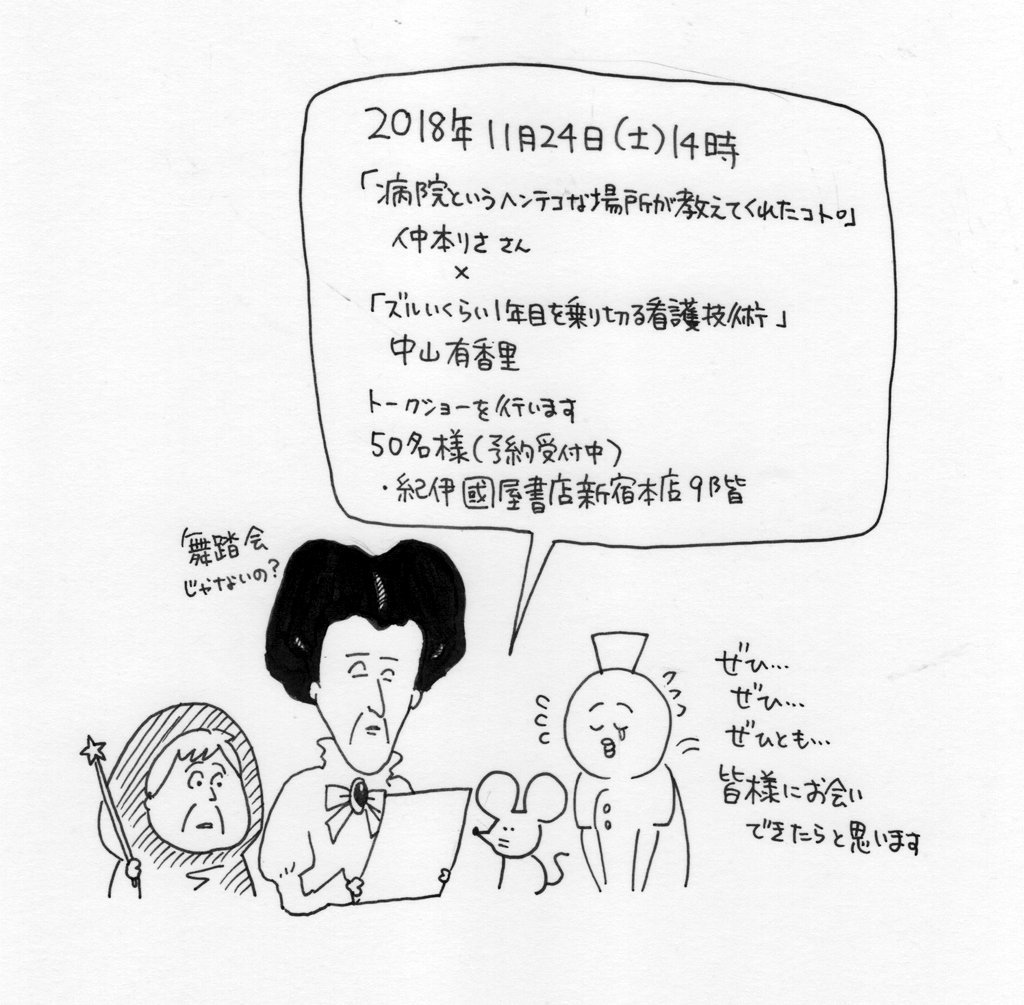 2018年11月24日(土)14時
「病院というヘンテコな場所が教えてくれたコト。」
仲本りささん
×
「ズルいくらい1年目を乗り切る看護技術」
中山有香里
トークショーを行います
50名様(予約受付中)
・紀伊國屋書店新宿本店9階
舞踏会
じゃないの?
ぜひ…
ぜひ…
ぜひとも…
皆様にお会い
できたらと思います